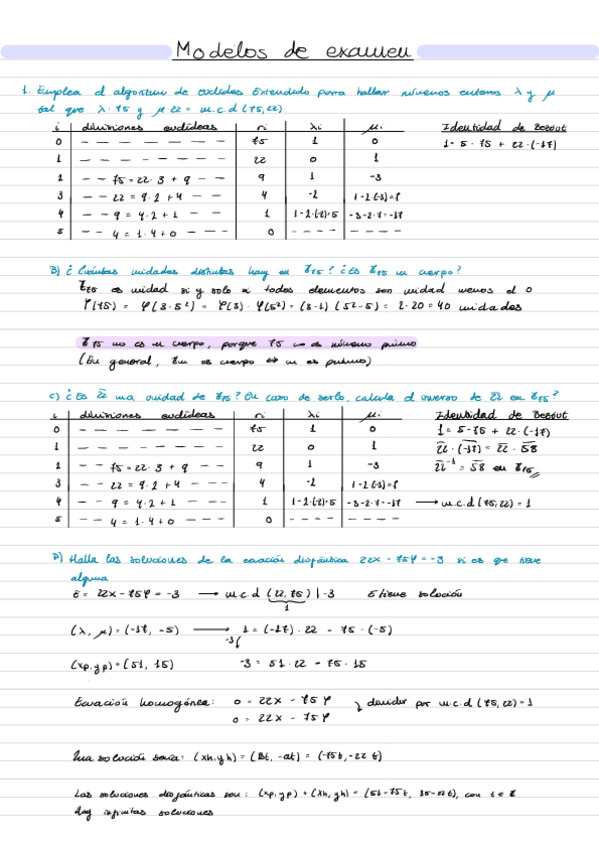 Modelos de examen
1. Emplea el algoritmo de euclides Extendido para hallar números enteros λ y μ
tal que λ·75 y μ·22 = m.c.d (75,22)
i divisiones euclídeas ri λi μi Identidad de Bezout
0 - - - - - - - - 75 1 0 1= 5·75 + 22·(-17)
1 - - - - - - - - 22 0 1
2 - - 75 = 22·3 + 9 - - 9 1 -3
3 - - 22 = 9·2 + 4 - - 4 -2 1-2·(-3)=7
4 - - 9 = 4·2 + 1 - - 1 1-2·(-2)=5 -3-2·7=-17
5 - - 4 = 1·4+0 - - - 0 - - - - - - - -
B) ¿Cuántas unidades distintas hay en Z75? ¿Es Z75 un cuerpo?
Z75 es unidad si y solo si todos elementos son unidad menos el 0
φ(75) = φ(3·5²) = φ(3)·φ(5²) = (3-1)(5²-5) = 2·20 = 40 unidades
Z75 no es un cuerpo, porque 75 no es número primo
(En general, Zm es cuerpo ⇔ m es primo)
c) ¿Es 22 una unidad de Z75? En caso de serlo, calcula el inverso de 22 en Z75?
i divisiones euclídeas ri λi μi Identidad de Bezout
0 - - - - - - - - 75 1 0 1 = 5·75 + 22·(-17)
1 - - - - - - - - 22 0 1 22·(-17) = 22·58
2 - - 75 = 22·3 + 9 - - 9 1 -3 22⁻¹ = 58 en Z75
3 - - 22 = 9·2 + 4 - - 4 -2 1-2·(-3)=7
4 - - 9 = 4·2 + 1 - - 1 1-2·(-2)=5 -3-2·7=-17 → m.c.d (75,22) = 1
5 - - 4 = 1·4+0 - - - 0 - - - - - - - -
D) Halla las soluciones de la ecuación diofántica 22x - 75y = -3 si es que tiene
alguna
E = 22x - 75y = -3 → m.c.d (22,75) | -3 E tiene solución
1
(λ, μ) = (-17, -5) → 1 = (-17)·22 - 75·(-5)
-3
(xp,yp) = (51, 15) -3 = 51·22 - 75·15
Ecuación homogénea: 0 = 22x - 75y dividir por m.c.d (75,22) = 1
0 = 22x - 75y
Una solución seria: (xh,yh) = (Bt, -at) = (-75t, -22t)
Las soluciones diofánticas son: (xp,yp) + (xh,yh) = (51-75t, 15-22t), con t ∈ Z
Hay infinitas soluciones